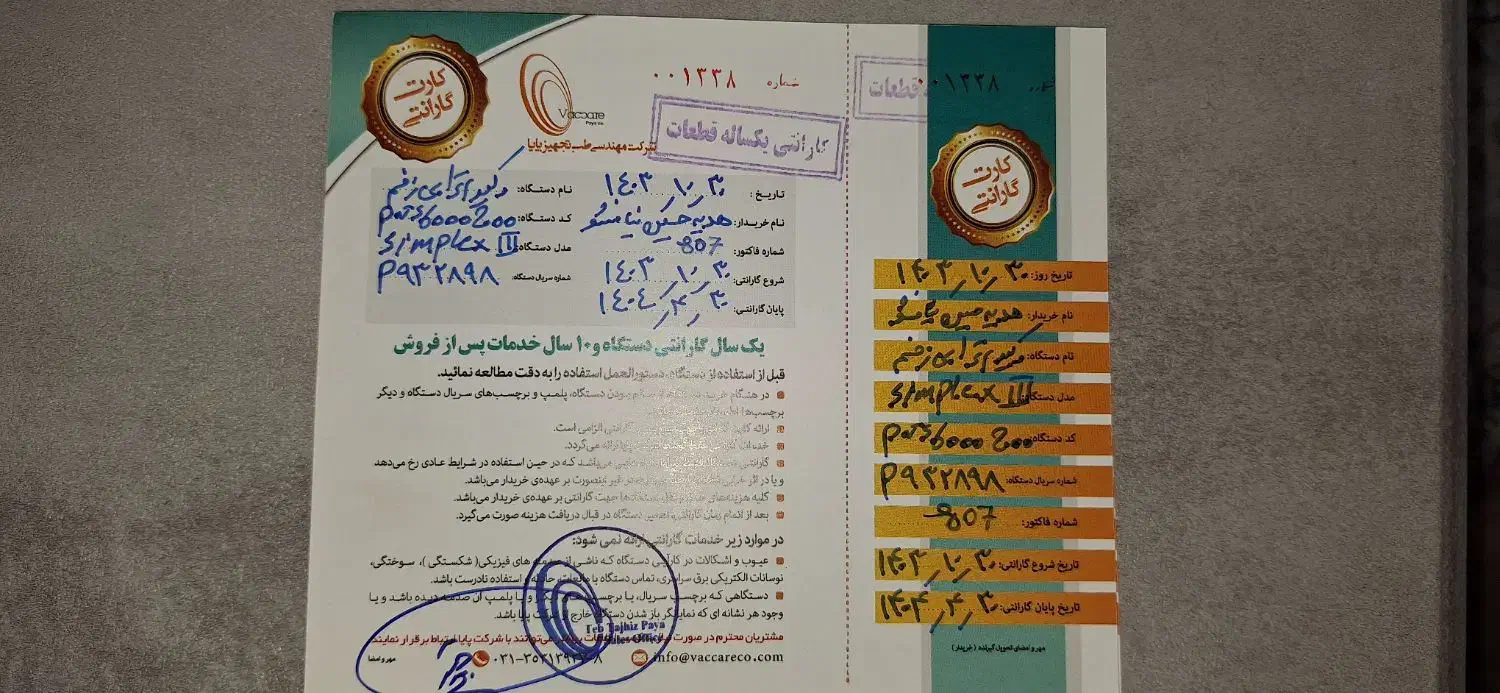 کارت
گارانتی
Vaccare
Paya co.
شرکت مهندسی طب تجهیز پایا
شماره ۰۰۱۳۳۸
گارانتی یکساله قطعات
تاریخ: ۱۴۰۳/۱۰/۳۰
نام خریدار:
شماره فاکتور: 807
شروع گارانتی: ۱۴۰۳/۱۰/۳۰
پایان گارانتی: ۱۴۰۴/۴/۳۰
نام دستگاه: وکیوم تراپی زخم
کد دستگاه:
مدل دستگاه: simplex III
شماره سریال دستگاه: P932898
یک سال گارانتی دستگاه و ۱۰ سال خدمات پس از فروش
قبل از استفاده از دستگاه، دستورالعمل استفاده را به دقت مطالعه نمائید.
در هنگام خرید دستگاه از سالم بودن دستگاه، پلمپ و برچسب‌های سریال دستگاه و دیگر
برچسب‌ها
ارائه گارانتی الزامی است.
خدمات ارائه می‌گردد.
گارانتی می‌باشد که در حین استفاده در شرایط عادی رخ می‌دهد
و یا در اثر در غیر اینصورت بر عهده‌ی خریدار می‌باشد.
کلیه هزینه‌های دستگاه‌ها جهت گارانتی بر عهده‌ی خریدار می‌باشد.
بعد از اتمام زمان گارانتی، تعمیر دستگاه در قبال دریافت هزینه صورت می‌گیرد.
در موارد زیر خدمات گارانتی ارائه نمی شود:
عیوب و اشکالات در کارآیی دستگاه که ناشی از صدمه های فیزیکی( شکستگی )، سوختگی،
نوسانات الکتریکی برق سراسری، تماس دستگاه با مایعات، حادثه و استفاده نادرست باشد.
دستگاهی که برچسب سریال، یا برچسب‌های دیگر و یا پلمپ آن صدمه دیده باشد و یا
وجود هر نشانه ای که نمایانگر باز شدن دستگاه خارج از شرکت پایا باشد.
مشتریان محترم در صورت نیاز به اطلاعات بیشتر می‌توانند با شرکت پایا ارتباط برقرار نمایند.
Teb Tajhiz Paya
Sales Office
info@vaccareco.com
مهر و امضا
۰۰۱۳۳۸
قطعات
کارت
گارانتی
تاریخ روز: ۱۴۰۳/۱۰/۳۰
نام خریدار:
نام دستگاه: وکیوم تراپی زخم
مدل دستگاه: simplex III
کد دستگاه:
شماره سریال دستگاه: P932898
شماره فاکتور: 807
تاریخ شروع گارانتی: ۱۴۰۳/۱۰/۳۰
تاریخ پایان گارانتی: ۱۴۰۴/۴/۳۰
مهر و امضای تحویل گیرنده ( خریدار)